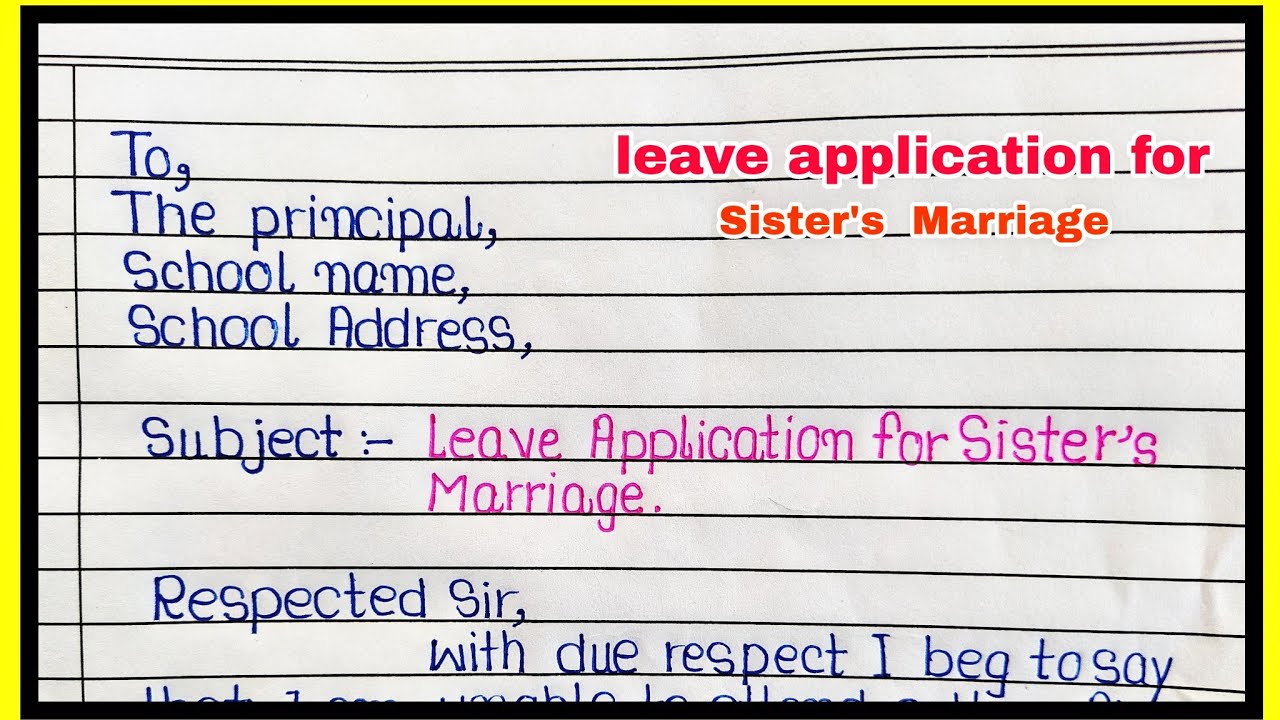 To,
The principal,
School name,
School Address,
leave application for
Sister's Marriage
Subject :- Leave Application for Sister's
Marriage.
Respected Sir,
with due respect I beg to say
that I am unable to attend